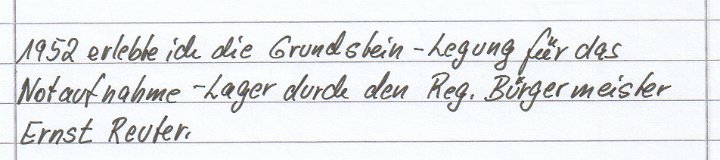 1952 erlebte ich die Grundstein-Legung für das
Notaufnahme-Lager durch den Reg. Bürgermeister
Ernst Reuter.